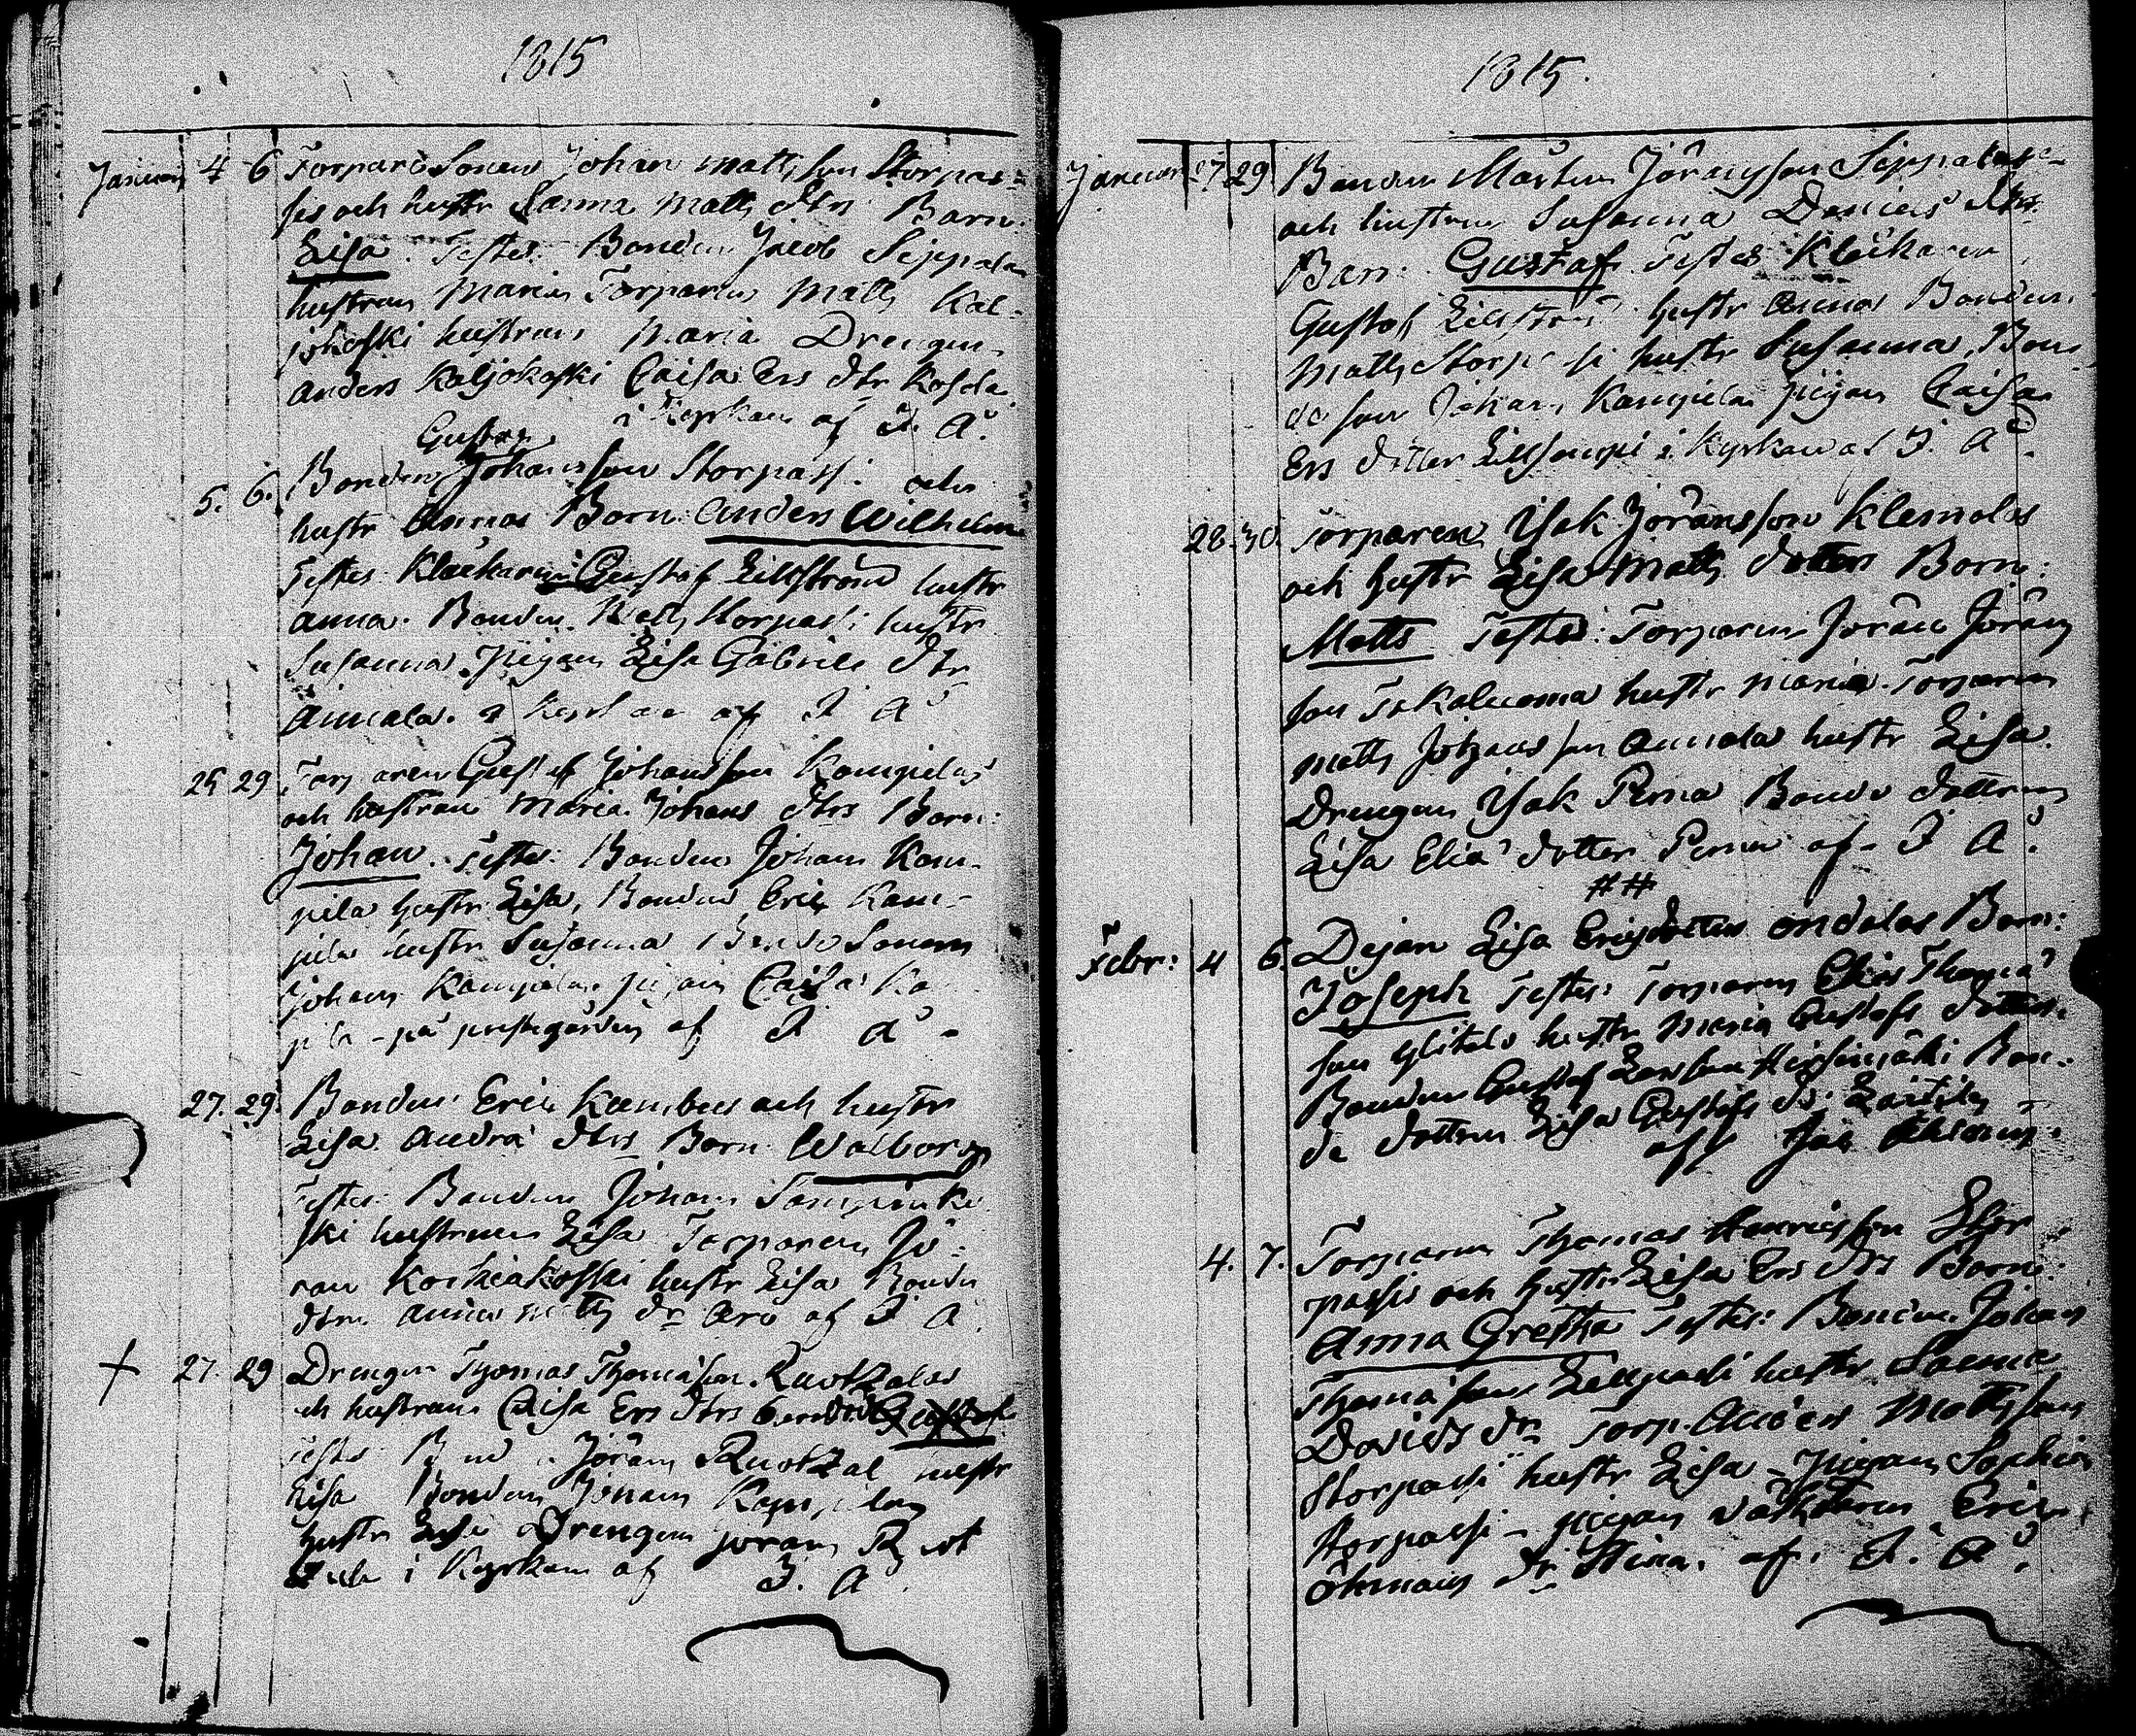 1815
Januari 4 6 Torpare Sonen Johan Matts son Storpas=
sis och hustr Sanna Matts dtrs Barn:
Lisa. Testes: Bonden Jacob Seppala
hustrun Maria Torparen Matts Kal=
jokoski hustrun Maria Drengen
Anders Kaljokoski Caisa Ers dtr
i Kyrkan af J. A.
Gustaf
5. 6. Bonden Johansson Storpassi och
hustr Annas Barn: Anders Wilhelm
Testes Klåckaren Gustaf Lillström hustr
Anna. Bonden Matts Storpassi hustr
Susanna, Pigan Lisa Gabriels dtr
Annala. i Kyrkan af J A
25 29 Torparen Gustaf Johansson Kampilas
och hustrun Maria Johans dtrs Barn:
Johan. Testes: Bonden Johan Kam-
pila hustr Lisa, Bonden Eric Kam-
pila hustr Susanna Bonde Sonen
Johan Kampila pigan Caisa Ka
pila - på prestgården af J A -
27. 29. Bonden Eric och hustr
Lisa Andrä dtrs Barn Walborg
Testes: Bonden Johan
ski hustrun Lisa Torparen Jö=
ran hustr Lisa Bonde
dtrn Anna Matts dr Aro af J A.
+ 27. 29 Drengen Thomas Thomasson Ruotzalas
och hustruns Caisa Ers dtrs Barn Gustaf
Testes Bond Jöran Ruotzal hustr
Lisa Bonden Johan Kampila
hustr Lisa Drengen Jöran Ruot
zala i Kyrkan af J. A.
1815.
Januari 27 29 Bonden Mårten Jöransson Seppalas
och hustrun Susanna Daniels dtrs
Barn: Gustaf Testes Klåckaren
Gustaf Lillström hustr Anna Bonden
Matts Storpassi hustr Susanna, Bon-
de son Johan Kampila pigan Caisa
Ers dotter i Kyrkan af J. A.
28. 30. Torparen Isak Jöransson Klemolas
och hustr Lisa Matts dotters Barn:
Matts Testes: Torparen Jöran Jörans
son hustr Maria. Torparen
Matts Johansson Annala hustr Lisa
Drengen Isak Perna Bonde dottren
Lisa Eliä dotter Perna af J A.
##
Febr: 4 6. Dejan Lisa Ericsdotters Barn:
Joseph Testes: Torparen Elias Thomä
son Ylitalo hustr Maria Gustafs dotter.
Bonden Gustaf Larsson Hirsimäki Bon=
de dottren Lisa Gustafs dr
af
4. 7. Torparen Thomas Henricsson Stor
passis och hustr Lisa Ers drs Barn:
Anna Gretha Testes: Bonden Johan
Thomäson hustr Sanna
Davids dr Torp. Anders Mattsson
Storpassi hustr Lisa - Pigan Sophia
Storpassi - pigan Eric
Öhmans dr Stina. af. J. A.